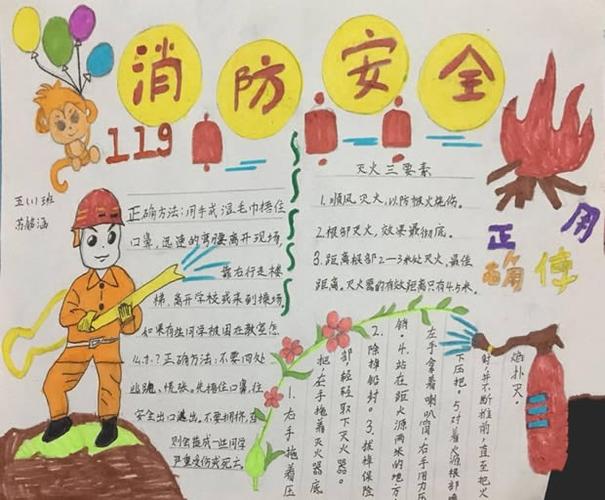 消防安全
119
五(1)班
正确方法:用手或湿毛巾捂住
口鼻,迅速的弯腰离开现场,
靠右行走楼
梯,离开学校或来到操场。
如果有些同学被困在教室怎
么办?正确方法:不要四处
逃跑、慌张。先捂住口鼻,往
安全出口逃出。不要拥挤,否
则会造成一些同学
严重受伤或死亡。
灭火三要素
1.顺风灭火,以防被火烧伤。
2.根部灭火,效果最彻底。
3.距离根部2—3米处灭火,最佳
距离。灭火器的有效距离只有4.5米。
正确使用
1.右手拖着压
把,右手拖着灭火器底
部轻轻取下灭火器。
2.除掉铅封。3.拔掉保险
销。4.站在距火源两米的地方,
左手拿着喇叭筒,右手用力压
下压把。5.对着火源根部
射,并不断推前,直至把火
焰扑灭。